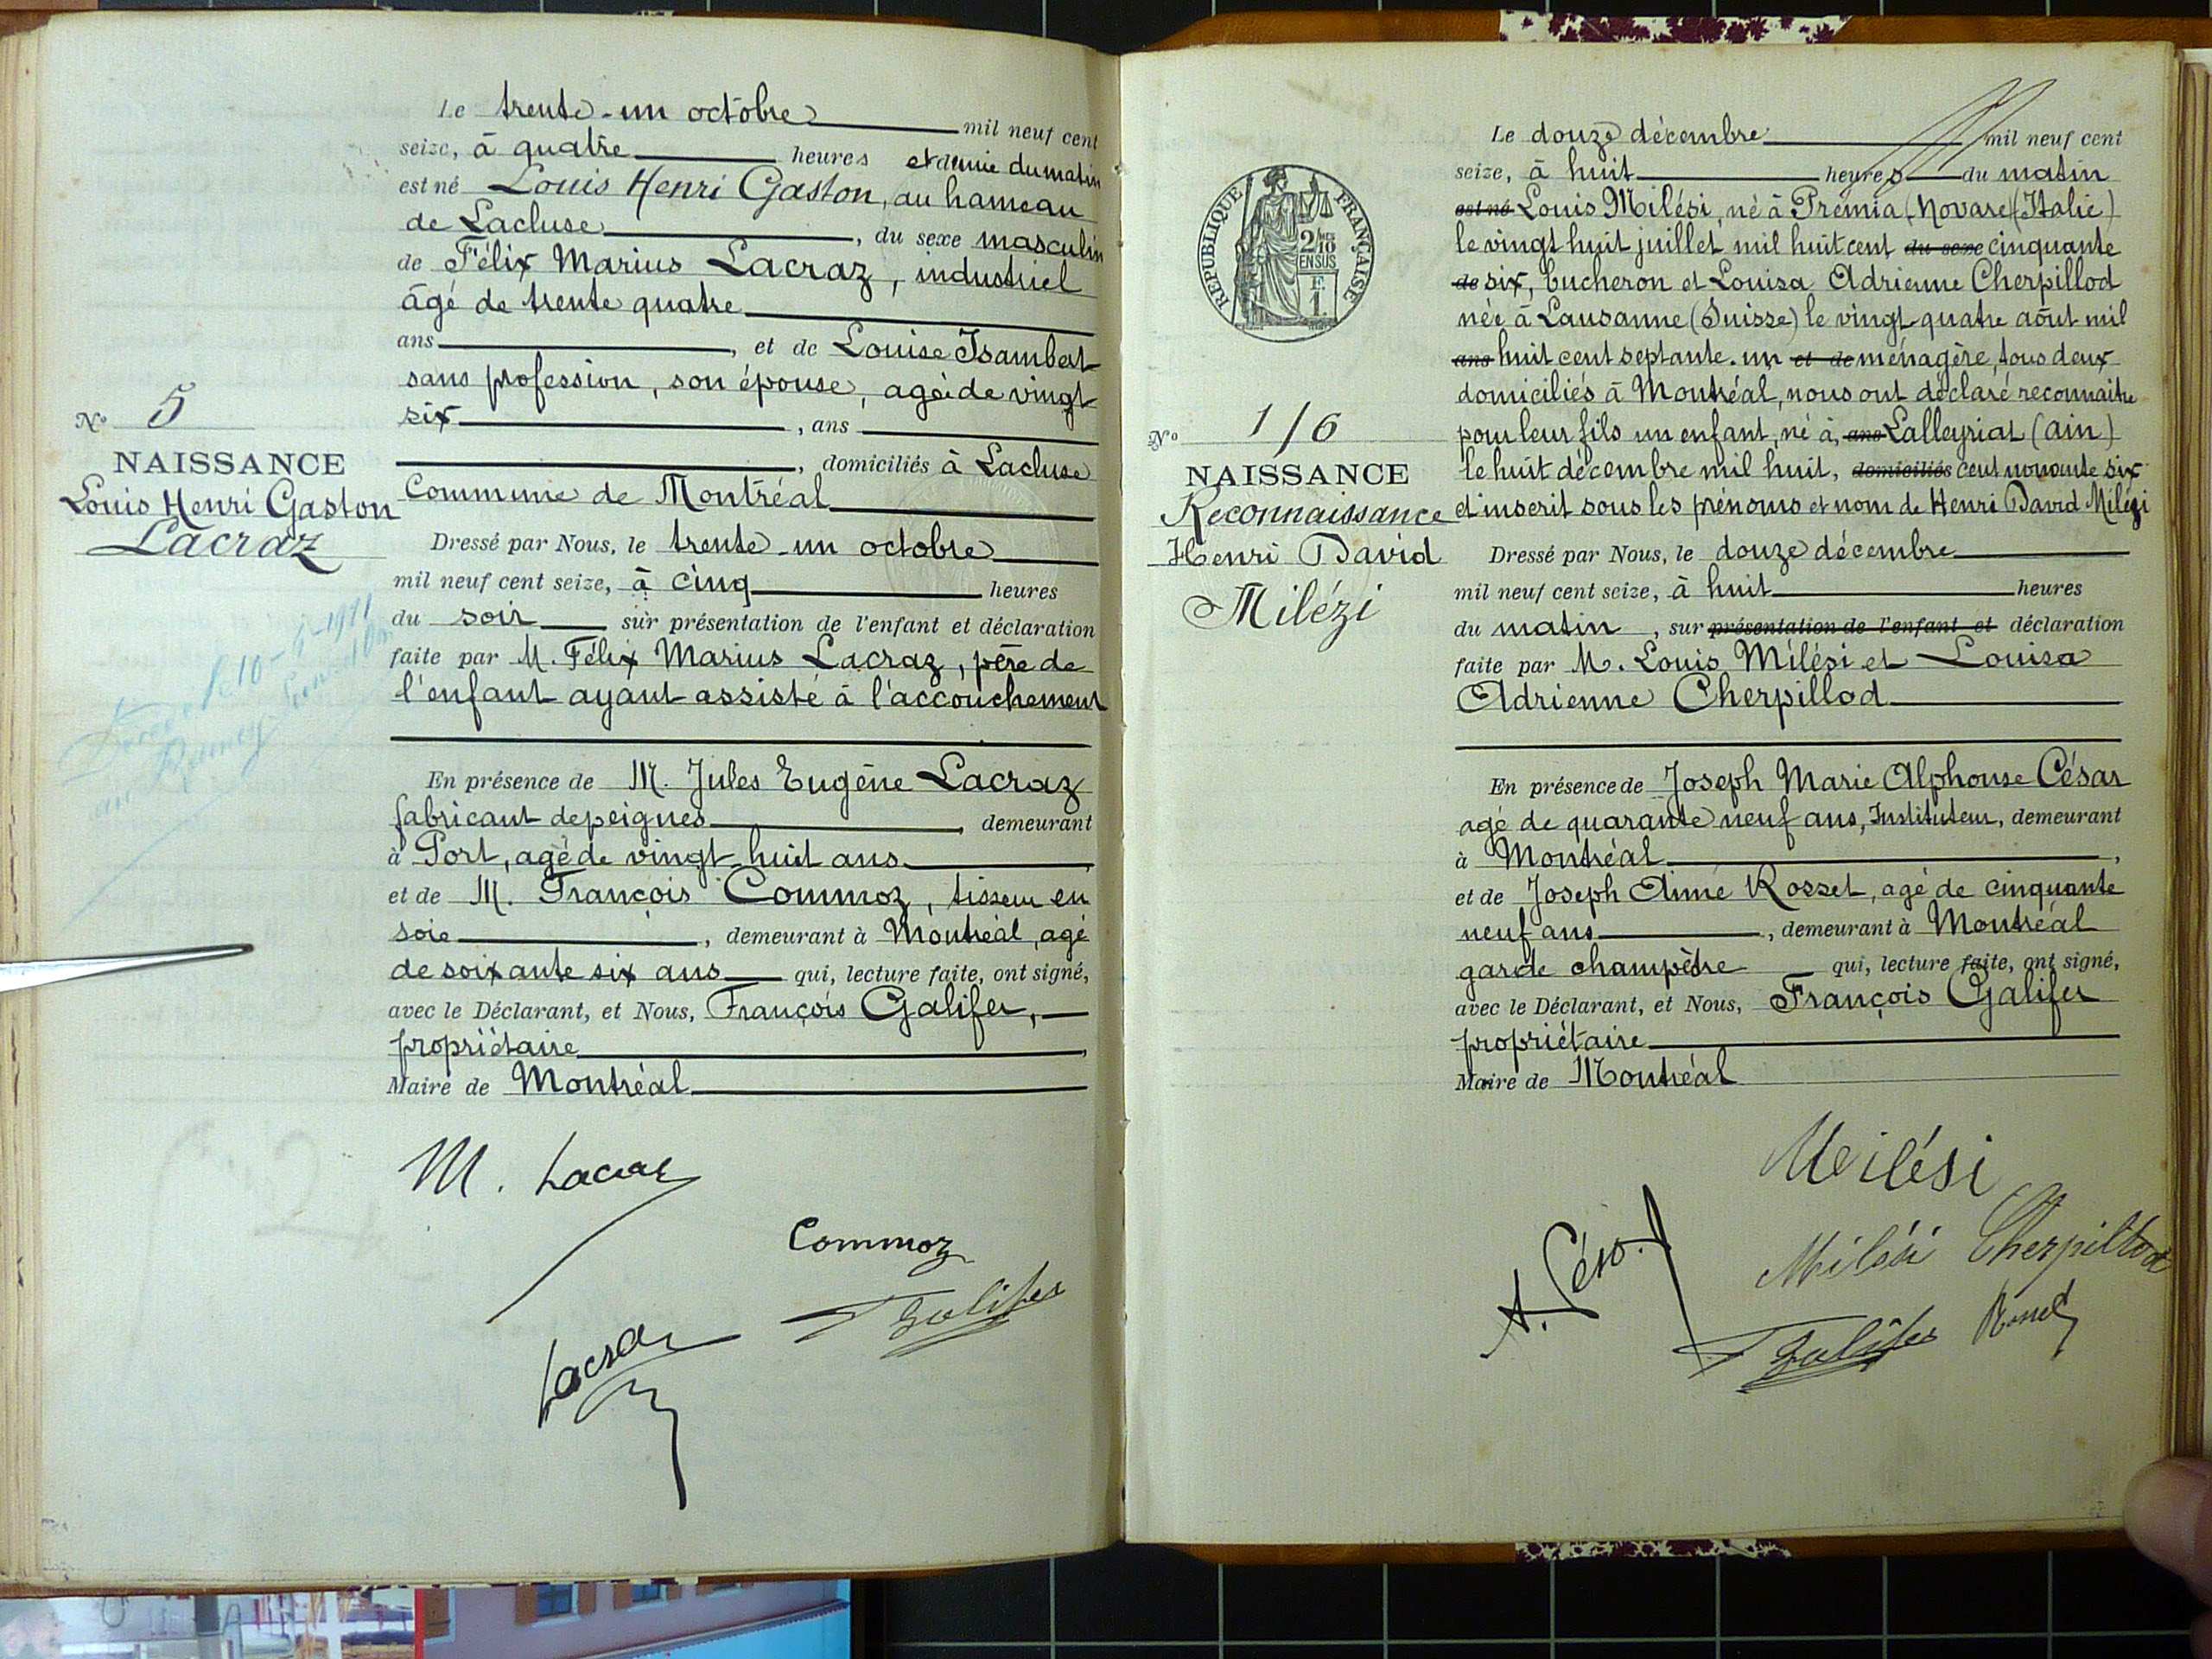 Le trente-un octobre mil neuf cent
seize, à quatre heures et demie du matin
est né Louis Henri Gaston, au hameau
de Lacluse, du sexe masculin
de Félix Marius Lacraz, industriel
âgé de trente quatre
ans, et de Louise Isambert
sans profession, son épouse, agée de vingt
six, ans
, domiciliés à Lacluse
Commune de Montréal
N° 5
NAISSANCE
Louis Henri Gaston
Lacraz
Dressé par Nous, le trente-un octobre
mil neuf cent seize, à cinq heures
du soir sur présentation de l'enfant et déclaration
faite par M. Félix Marius Lacraz, père de
l'enfant ayant assisté à l'accouchement
En présence de M. Jules Eugène Lacraz
fabricant de peignes, demeurant
à Port, agé de vingt huit ans,
et de M. François Commoz, tisseur en
soie, demeurant à Montréal, agé
de soixante six ans qui, lecture faite, ont signé,
avec le Déclarant, et Nous, François Galifer,
propriétaire,
Maire de Montréal
M. Lacraz
Commoz
Lacraz
Galifer
Le douze décembre mil neuf cent
seize, à huit heures du matin
est né Louis Milési, né à Prémia (Novare) (Italie)
le vingt huit juillet mil huit cent du sexe cinquante
de six, Bucheron et Louisa Adrienne Cherpillod
née à Lausanne (Suisse) le vingt-quatre août mil
ans huit cent septante-un et de ménagère, tous deux
domiciliés à Montréal, nous ont déclaré reconnaitre
pour leur fils un enfant, né à, ans Lalleyriat (ain)
le huit décembre mil huit, domiciliés cent nonante six
et inscrit sous les prénoms et nom de Henri David Milézi
RÉPUBLIQUE FRANÇAISE
2/10
EN SUS
F.
1.
N° 1/6
NAISSANCE
Reconnaissance
Henri David
Milézi
Dressé par Nous, le douze décembre
mil neuf cent seize, à huit heures
du matin, sur présentation de l'enfant et déclaration
faite par M. Louis Milési et Louisa
Adrienne Cherpillod
En présence de Joseph Marie Alphonse César
agé de quarante neuf ans, Instituteur, demeurant
à Montréal,
et de Joseph Aimé Rosset, agé de cinquante
neuf ans, demeurant à Montréal
garde champêtre qui, lecture faite, ont signé,
avec le Déclarant, et Nous, François Galifer
propriétaire
Maire de Montréal
Milési
A. César
Milési Cherpillod
Galifer Rosset